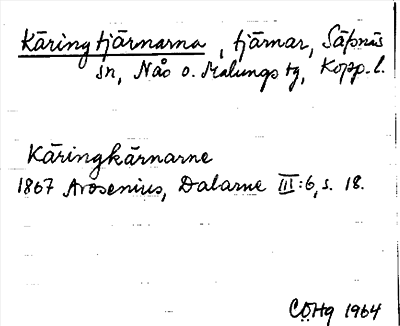 Käringtjärnarna, tjärnar, Säfsnäs
sn, Nås o. Malungs tg, Kopp. l.
Käringkärnarne
1867 Arosenius, Dalarne III:6, s. 18.
CÖHg 1964